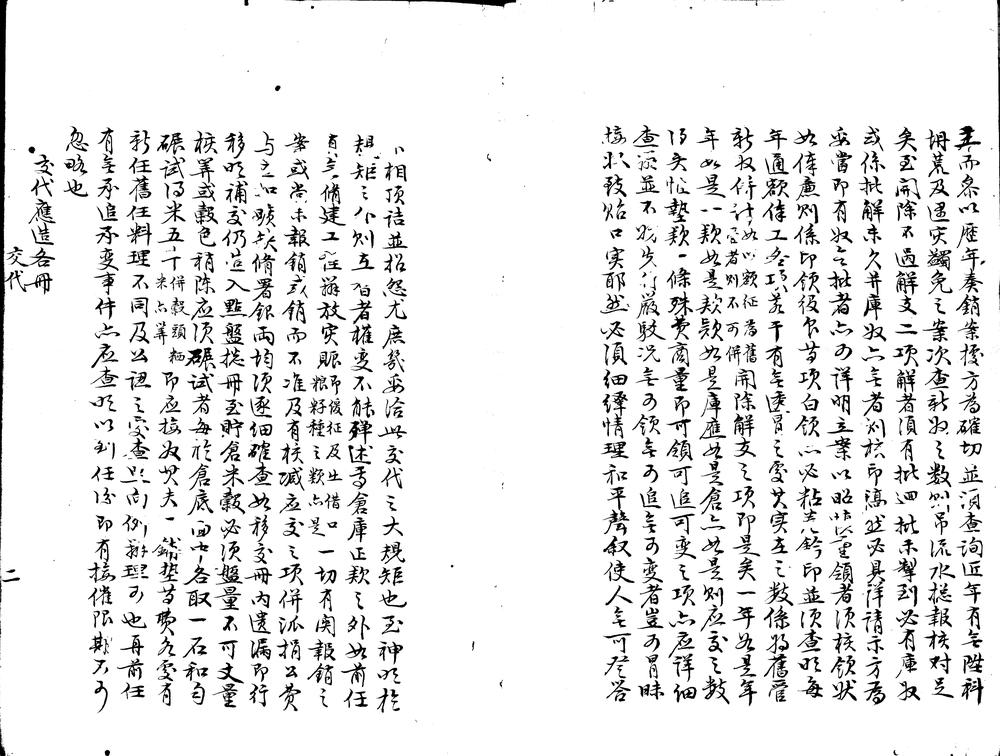 王而參以歷年奏銷案據方為確切並須查詢近年有無陞科
坍荒及遇災蠲免之案次查新收之數則吊流水總報核對足
矣至開除不過解支二項解者須有批迴批未掣到必有庫收
或係批解未久并庫收亦無者則核印稿然必具詳請示方為
妥當即有收無批者亦可詳明立案以昭慎重領者須核領狀
如俸廉則係印領役食等項白領亦必粘卷鈐印並須查明每
年通額俸工各項若干有無透冒之處其實在之數係將舊管
新收併計如以額征為舊管者則不可併開除解支之項即是矣一年如是年
年如是一款如是款款如是庫應如是倉亦如是則應交之數
得矣惟墊款一條殊費商量即可領可追可變之項亦應詳細
查並不先行嚴駁況無可領無可追無可變者豈可冒昧
接收致貽口實耶然必須細繹情理和平聲敘使人無可登答
相頂詰並招怨尤庶幾妥洽此交代之大規矩也至神明於
規矩之外則立者權變不能殫述焉倉庫正款之外如前任
有無修建工程辦放災賑即緩征及出借口糧籽種之類亦是一切有關報銷之
案或尚未報銷或銷而不准及有核減應交之項併派捐公費
與交如衙署銀兩均須逐細確查如移交冊內遺漏即行
移明補交仍造入盤總冊至貯倉米穀必須盤量不可丈量
核算或穀色稍陳應須碾試者每於倉底面中各取一石和勻
碾試得米五斗併穀頭粞米亦算即應接收其夫一墊等費各處有
新任舊任料理不同及公認之處查照向例辦理可也再前任
有無承追承變事件亦應查明以到任後即有接催限期不可
忽略也
交代應造各冊
交代
二